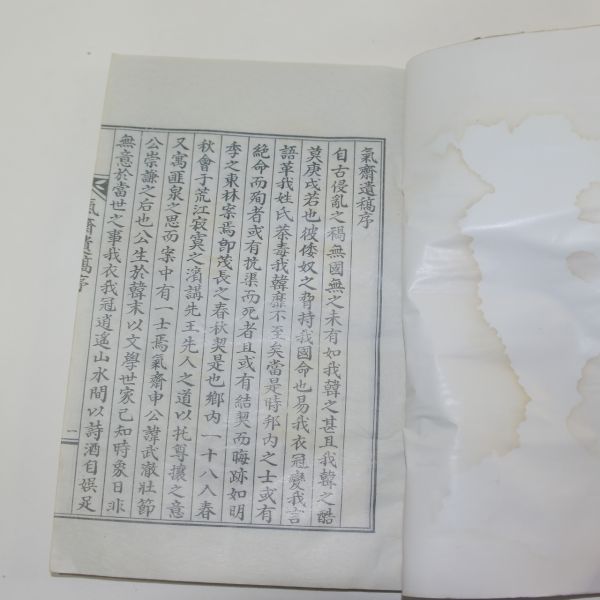 氣齋遺稿序
自古侵亂之禍無國無之未有如我韓之甚且我韓之酷
莫庚戌若也彼倭奴之脅持我國命也易我衣冠變我言
語革我姓氏荼毒我韓靡不至矣當是時邦內之士或有
絶命而殉者或有挽渠而死者且或有結契而晦跡如明
季之東林案焉卽茂長之春秋契是也鄕內一十八人春
秋會于荒江寂寞之濱講先王先人之道以托尊攘之意
又寓匪泉之思而案中有一士焉氣齋申公諱武澈壯節
公崇謙之后也公生於韓末以文學世家已知時象日非
無意於當世之事我衣我冠逍遙山水間以詩酒自娛足
氣齋遺稿序
一